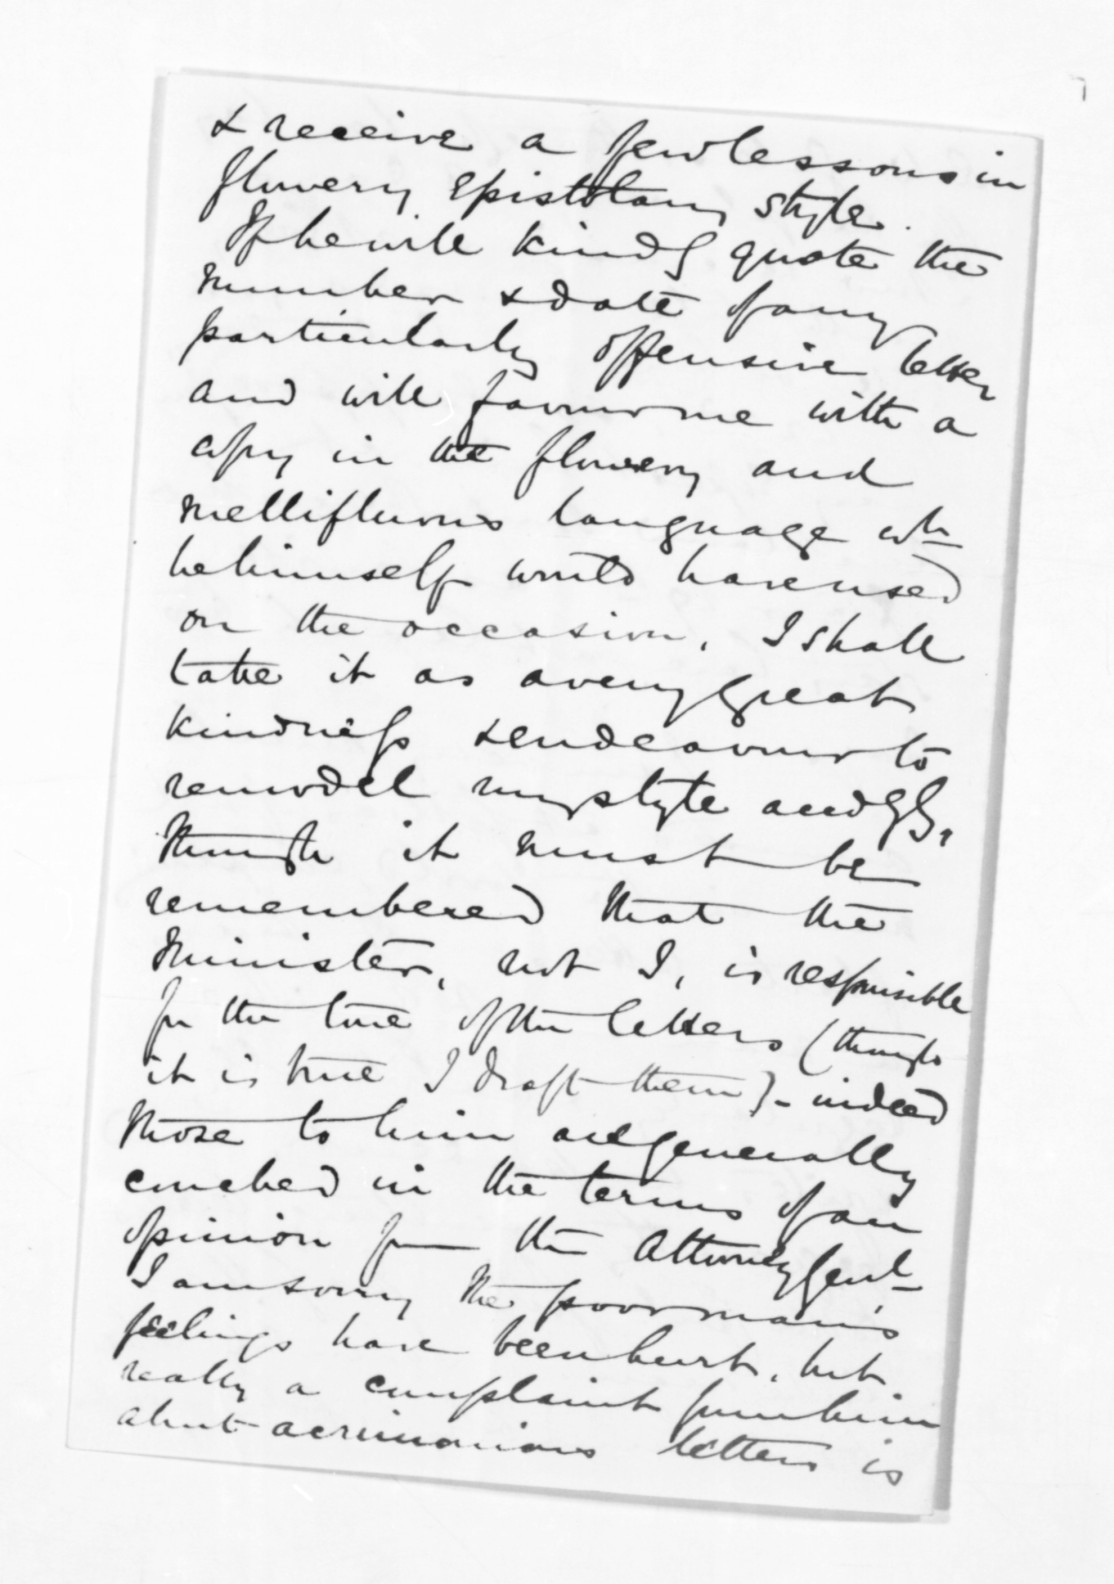 & receive a few lessons in
flowery epistolary style.
If he will kindly quote the
number & date of any
particularly offensive letter
and will favour me with a
copy in the flowery and
mellifluous language wh
he himself would have used
on the occasion, I shall
take it as a very great
kindness & endeavour to
remodel my style accdgly,
though it must be
remembered that the
Minister, not I, is responsible
for the tone of the letters (though
it is true I draft them) - indeed
those to him are generally
couched in the terms of an
opinion from the Attorney Genl
I am sorry the poor man's
feelings have been hurt, but
really a complaint from him
about acrimonious letters is